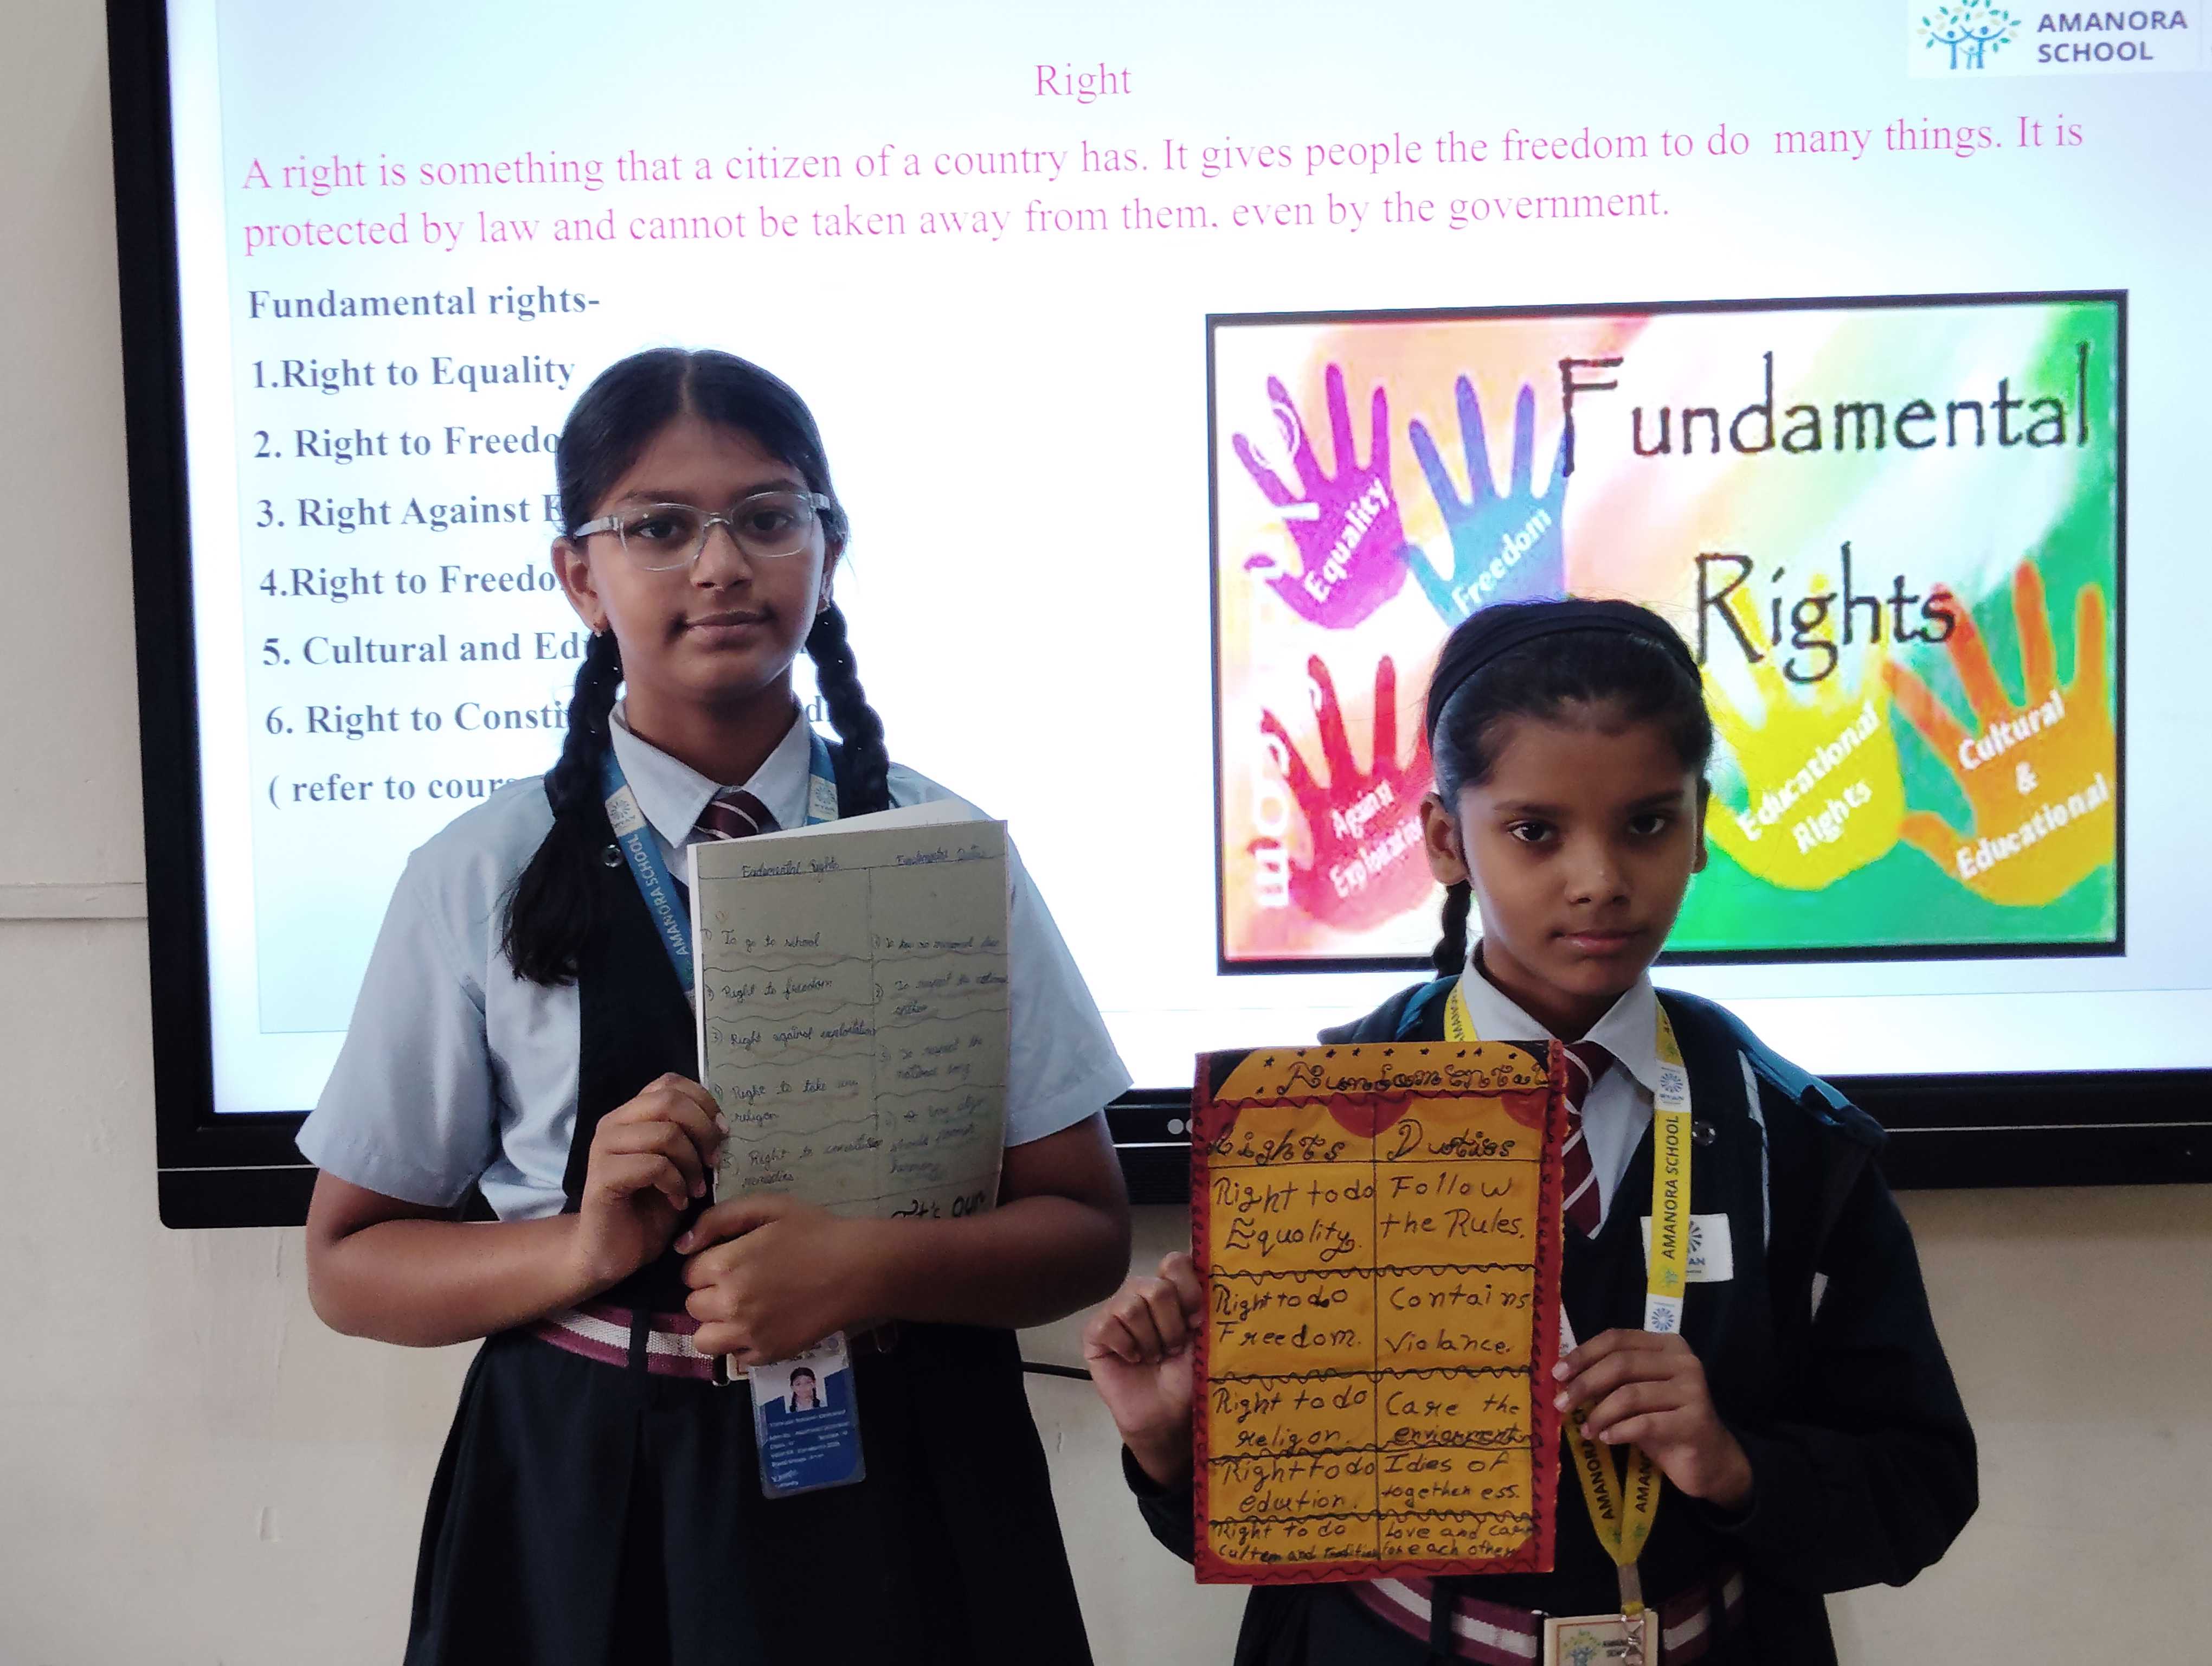 AMANORA
SCHOOL
Right
A right is something that a citizen of a country has. It gives people the freedom to do many things. It is
protected by law and cannot be taken away from them. even by the government.
Fundamental rights-
1.Right to Equality
2. Right to Freedo
3. Right Against E
4.Right to Freedo
5. Cultural and Ed
6. Right to Consti
( refer to cour
Fundamental
Rights
Equality
Freedom
Against
Educational
Rights
Cultural
&
Educational
AMANORA SCHOOL
Fundamental Rights
1) To go to school
2) Right to freedom
3) Right against
4) Right to take
religon
5) Right to
To respect the national
To respect the
national song
should
It's our
Fundamental
Rights
Duties
Right to do
Equality.
Follow
the Rules.
Right to do
Freedom.
Contains
Violance.
Right to do
religon.
Care the
Right to do
edution.
Idies of
togethen ess.
Right to do
Love and care
and
for each other
AMANORA SCHOOL
AMANORA